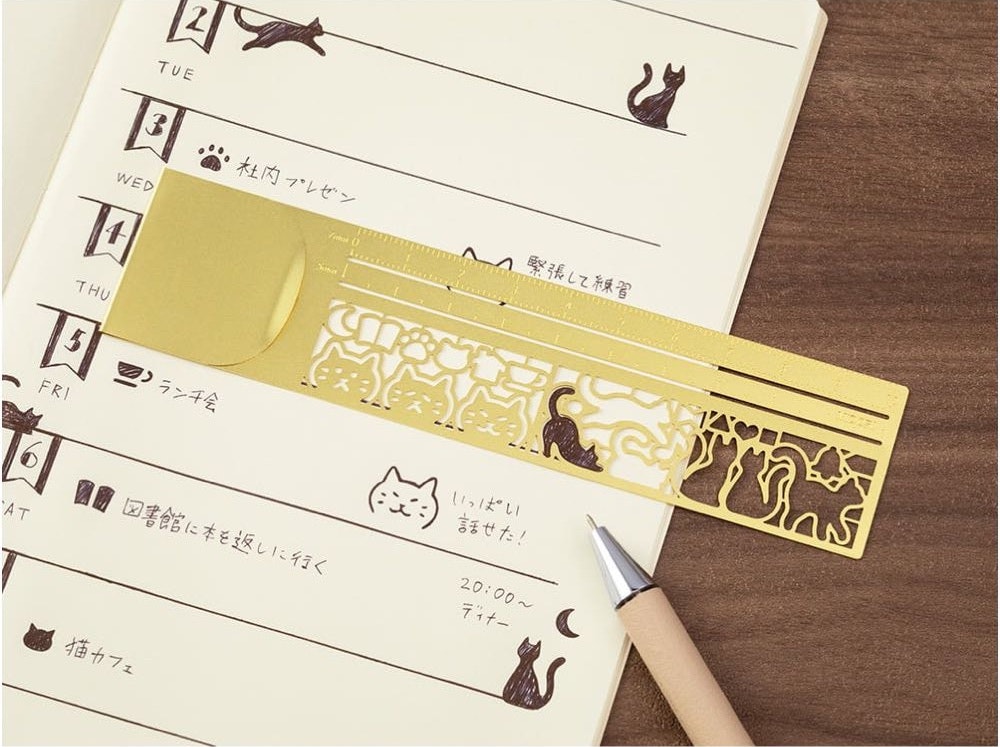 2
TUE
3
社内プレゼン
WED
4
緊張して練習
THU
5
ランチ会
FRI
6
いっぱい
話せた!
図書館に本を返しに行く
SAT
20:00~
ディナー
猫カフェ